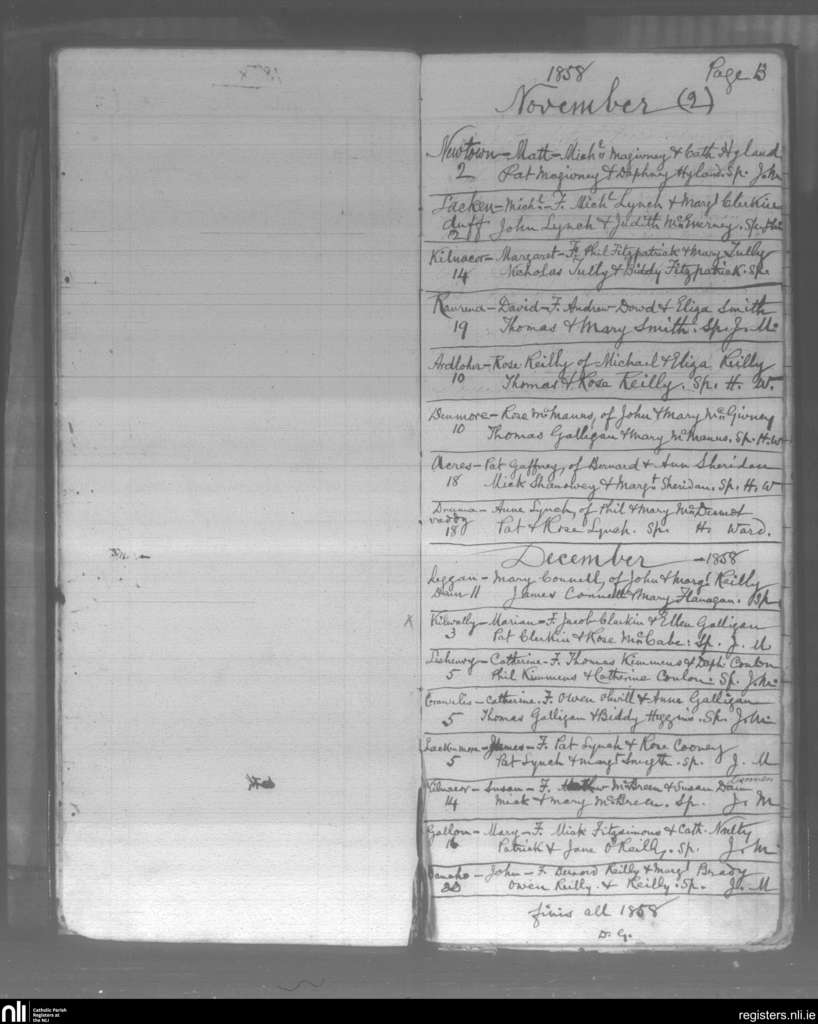 1858 Page B
November (2)
Newtown - Matt - Michl Magivney & Cath Hyland
2 Pat Magivney & Daphney Hyland. Sp. John
Lacken - Michl - F. Michl Lynch & Margt Clerkin
duff John Lynch & Judith McEnerney. Sp.
2
Kilnacor - Margaret - F. Phil Fitzpatrick & Mary Tully
14 Nicholas Tully & Biddy Fitzpatrick. Sp.
- David - F. Andrew Dowd & Eliza Smith
19 Thomas & Mary Smith. Sp. J. M.
Ardloher - Rose Reilly of Michael & Eliza Reilly
10 Thomas & Rose Reilly. Sp. H. W.
Denmore - Rose McManus, of John & Mary McGivney
10 Thomas Galligan & Mary McManus. Sp. H. W
Acres - Pat Gaffney, of Bernard & Ann Sheridan
18 Mick & Margt Sheridan. Sp. H. W
Drumma - Anne Lynch, of Phil & Mary McDermot
vaddy Pat & Rose Lynch. Sp. H. Ward.
18
December - 1858
Leggan - Mary Connell, of John & Margt Reilly
Dain 11 James Connell & Mary Flanagan. Sp
Kilwally - Marian - F. Jacob Clerkin & Ellen Galligan
3 Pat Clerkin & Rose McCabe. Sp. J. M
- Catherine - F. Thomas Kimmens & Daph. Conlon
5 Phil Kimmens & Catherine Conlon. Sp. J. M.
- Catherine. F. Owen & Anne Galligan
5 Thomas Galligan & Biddy Higgins. Sp. J. M.
Lackenmore - James - F. Pat Lynch & Rose Cooney
5 Pat Lynch & Margt Smyth. Sp. J. M
Kilnacor - Susan - F. McBreen & Susan
14 Mick & Mary McBreen. Sp. J. M
Gallon - Mary - F. Mick Fitzsimons & Cath. Nulty
16 Patrick & Jane O'Reilly. Sp. J. M
- John - F. Bernard Reilly & Margt Brady
20 Owen Reilly. & Reilly. Sp. J. M
finis all 1858
D. G.
nli
Catholic Parish
Registers at
the NLI
registers.nli.ie